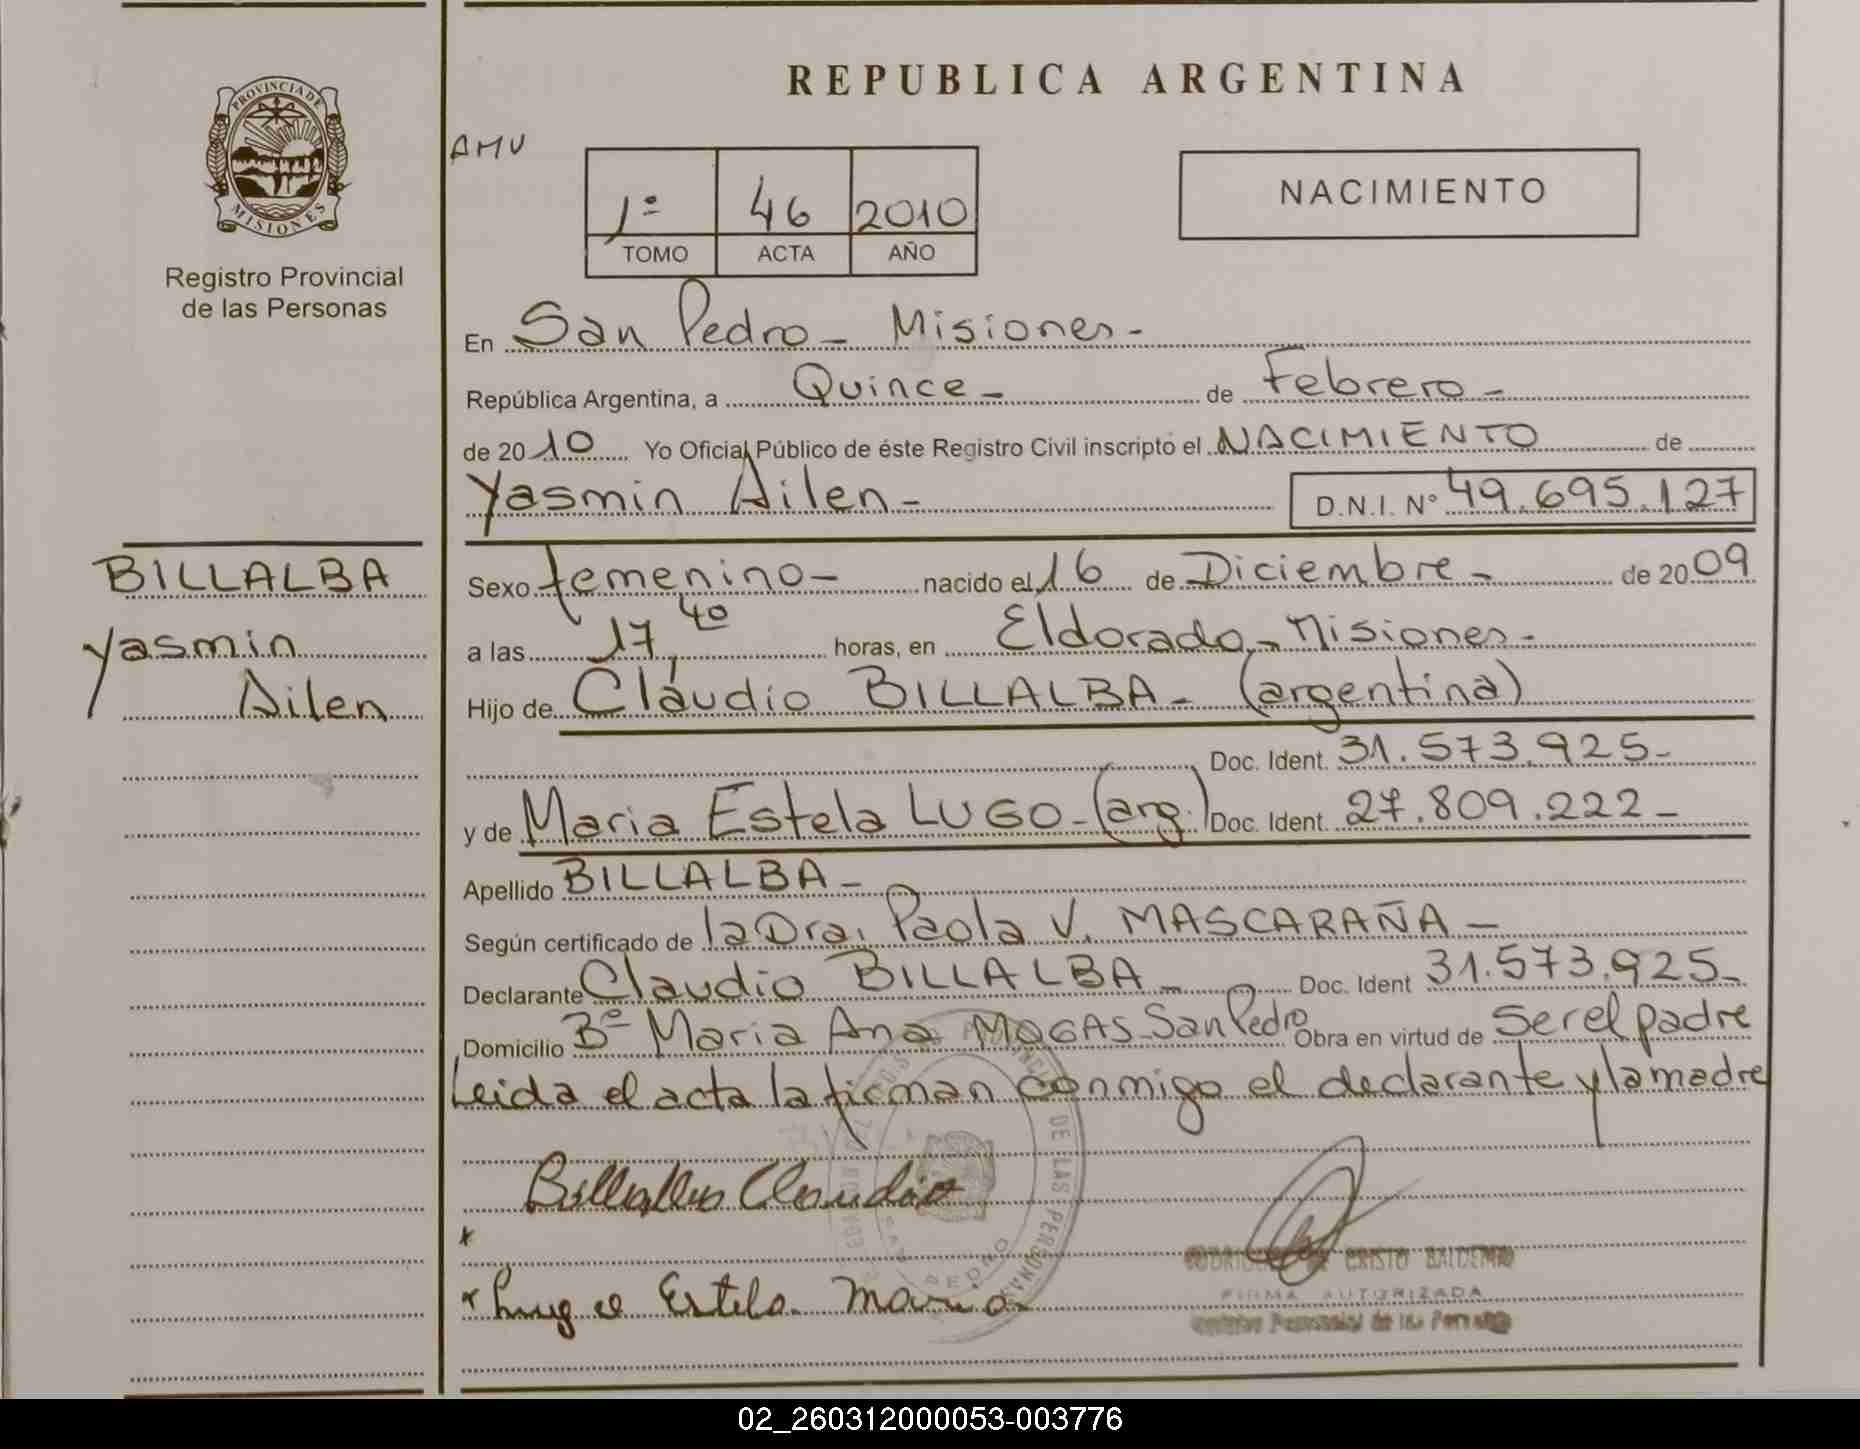 REPUBLICA ARGENTINA
PROVINCIA DE
MISIONES
Registro Provincial
de las Personas
AMV
1º 46 2010
TOMO ACTA AÑO
NACIMIENTO
En San Pedro - Misiones -
República Argentina, a Quince - de Febrero -
de 2010 Yo Oficial Público de éste Registro Civil inscripto el NACIMIENTO de
Yasmin Ailen - D.N.I. Nº 49.695.127
BILLALBA
Yasmin
Ailen
Sexo femenino - nacido el 16 de Diciembre - de 2009
a las 17,40 horas, en Eldorado - Misiones -
Hijo de Claudio BILLALBA - (argentina)
Doc. Ident. 31.573.925 -
y de Maria Estela LUGO - (arg.) Doc. Ident. 27.809.222 -
Apellido BILLALBA -
Según certificado de la Dra. Paola V. MASCARAÑA -
Declarante Claudio BILLALBA - Doc. Ident 31.573.925 -
Domicilio Bº Maria Ana MOGAS - San Pedro Obra en virtud de ser el padre
Leida el acta la firman conmigo el declarante y la madre
Billalba Claudio
x
x Estela Maria
DE LAS PERSONAS
SAN PEDRO
CRISTO BALDEMAR
FIRMA AUTORIZADA
Provincial de las Personas
02_260312000053-003776